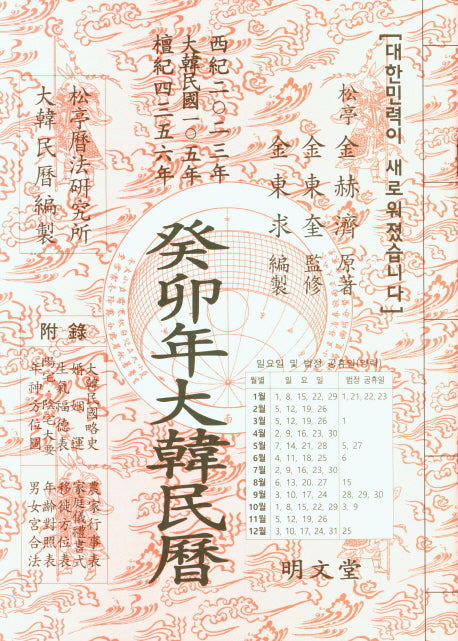 [대한민력이 새로워졌습니다]
松亭 金赫濟 原著
金東奎 監修
金東求 編製
西紀二〇二三年
大韓民國一〇五年
檀紀四三五六年
癸卯年大韓民曆
松亭曆法硏究所
大韓民曆編製
附錄
大韓民國略史
婚姻運
生氣福德表
陽宅·陰宅大要
年神方位圖
農家行事表
家庭儀禮書式
移徙方位表
年齡對照表
男女宮合法
일요일 및 법정 공휴일(양력)
월별 일 요 일 법정 공휴일
1월 1, 8, 15, 22, 29 1, 21, 22, 23
2월 5, 12, 19, 26
3월 5, 12, 19, 26 1
4월 2, 9, 16, 23, 30
5월 7, 14, 21, 28 5, 27
6월 4, 11, 18, 25 6
7월 2, 9, 16, 23, 30
8월 6, 13, 20, 27 15
9월 3, 10, 17, 24 28, 29, 30
10월 1, 8, 15, 22, 29 3, 9
11월 5, 12, 19, 26
12월 3, 10, 17, 24, 31 25
明文堂